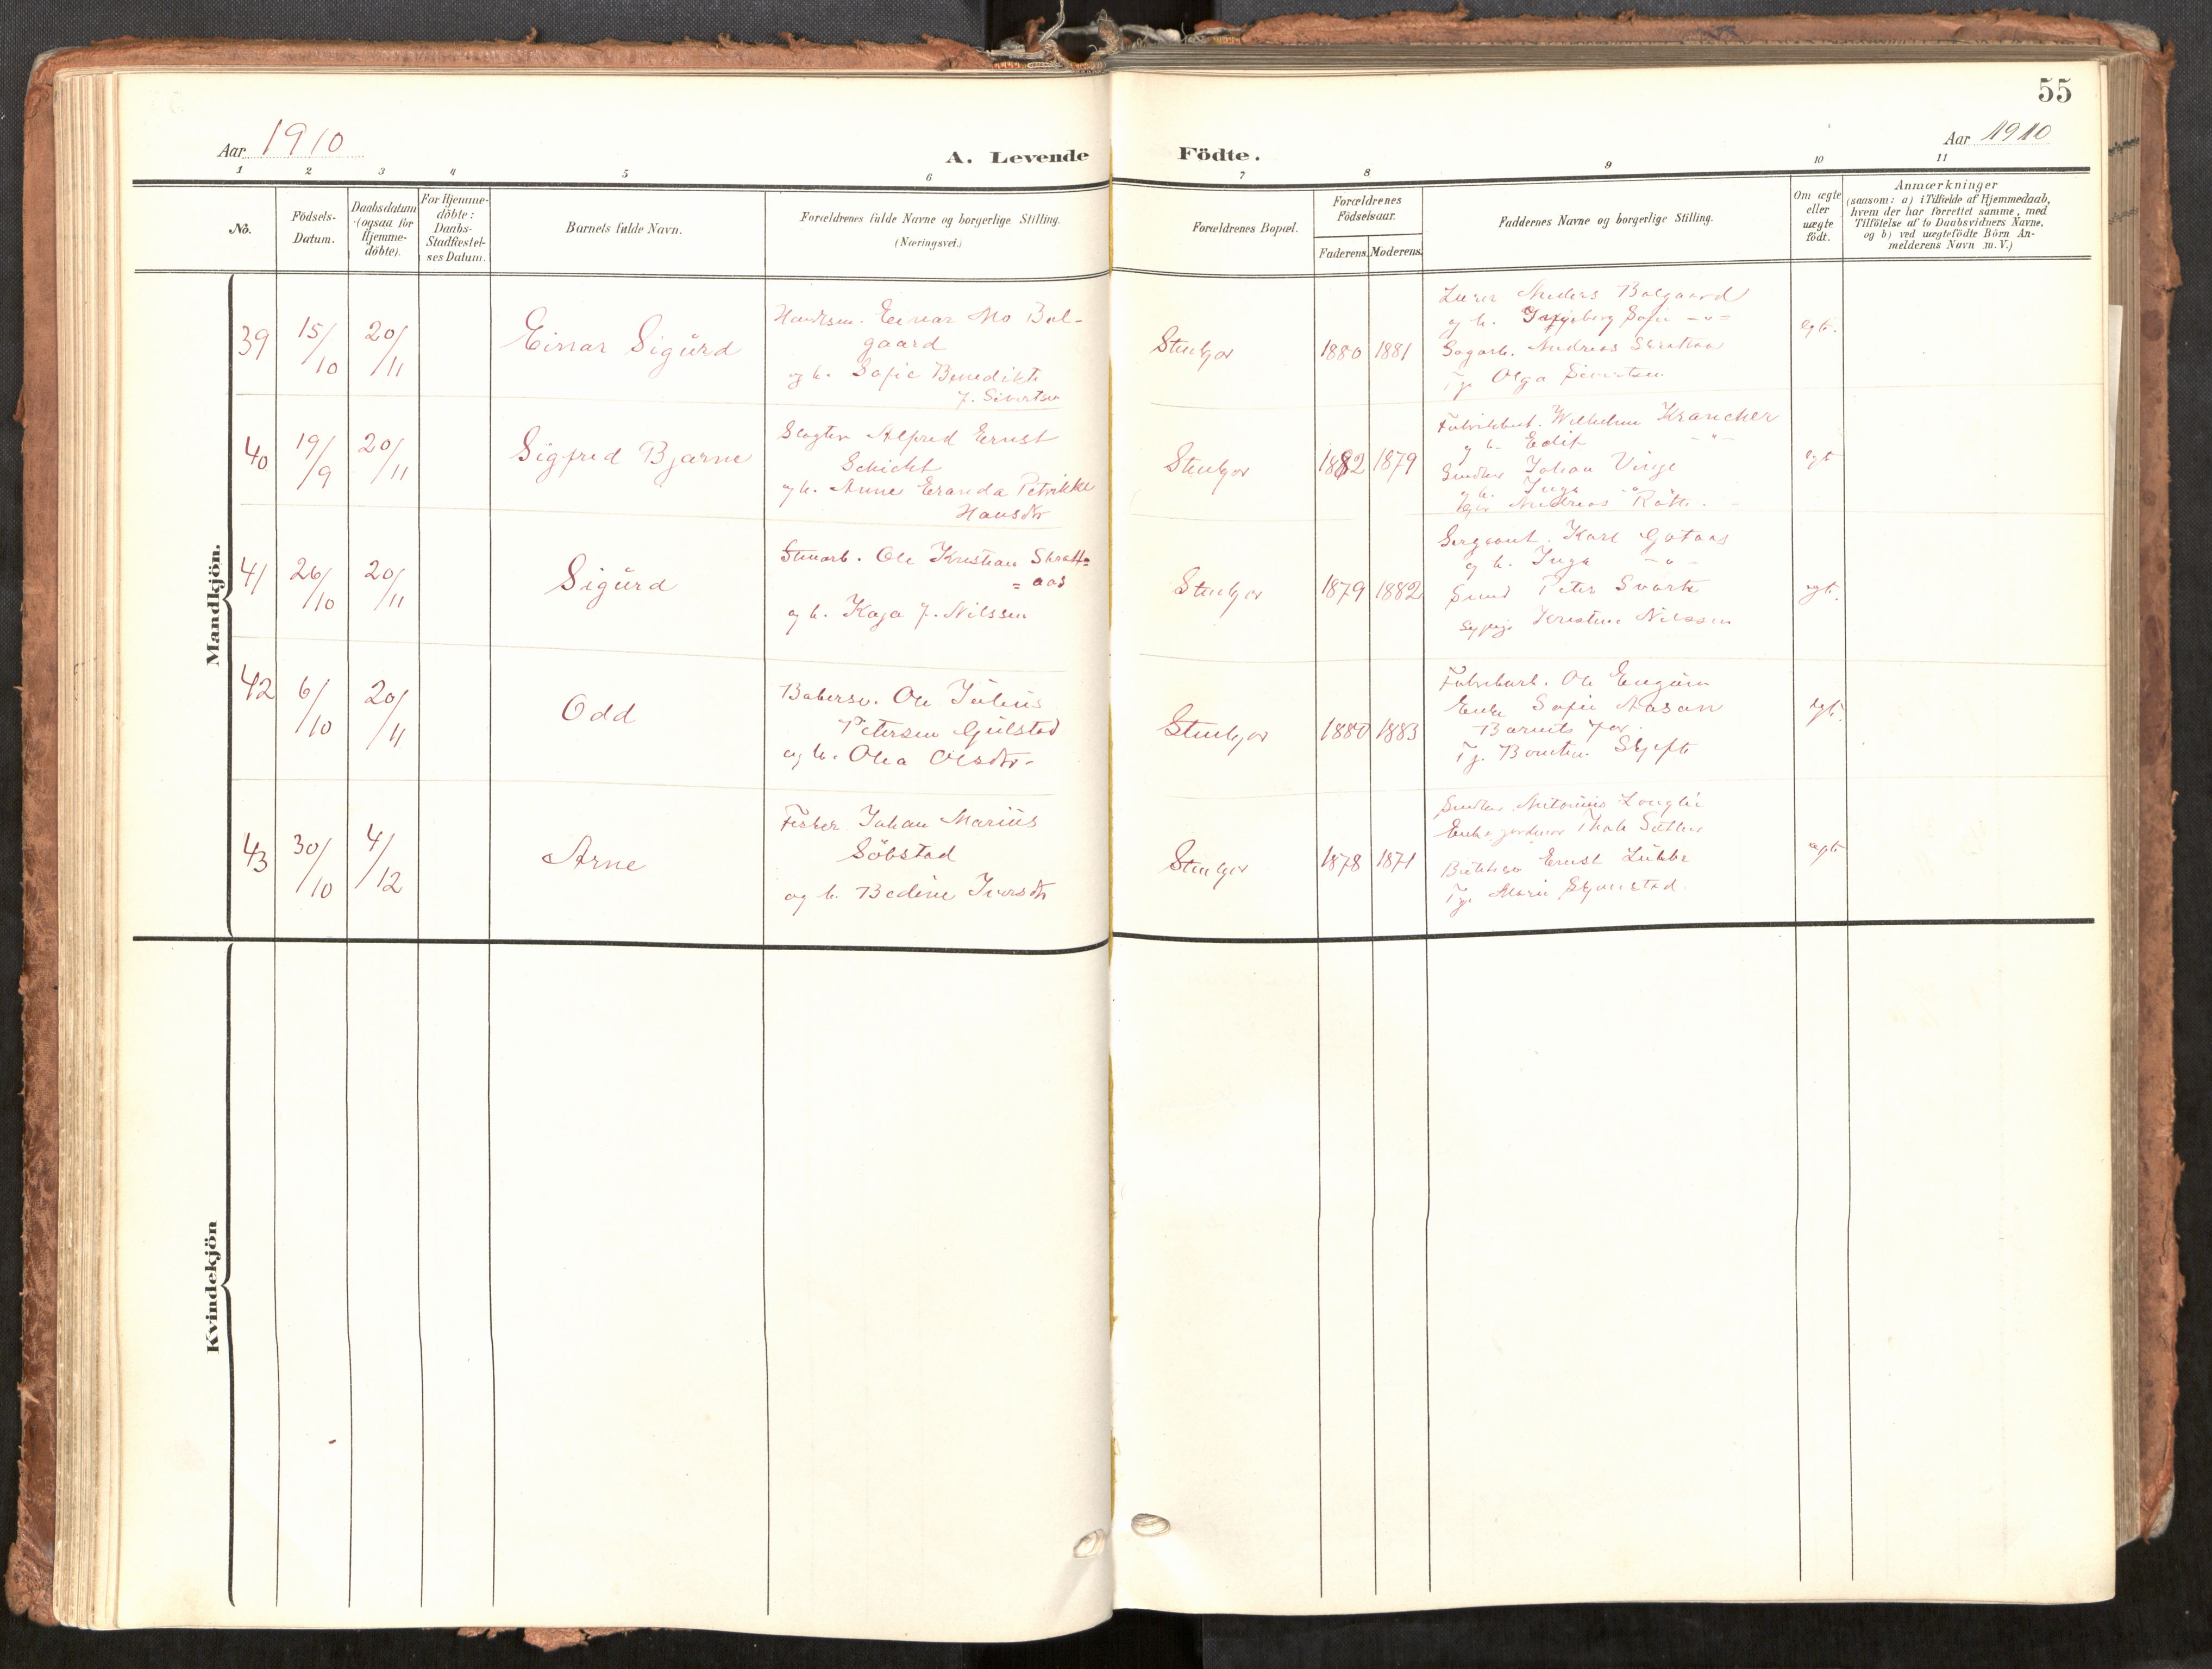 55
Aar 1910
A. Levende Födte.
Aar 1910
1 2 3 4 5 6 7 8 9 10 11
No.
Födsels-
Datum.
Daabsdatum
(ogsaa for
Hjemme-
döbte).
For Hjemme-
döbte:
Daabs-
Stadfæstel-
ses Datum.
Barnets fulde Navn.
Forældrenes fulde Navne og borgerlige Stilling.
(Næringsvei.)
Forældrenes Bopæl.
Forældrenes
Födselsaar.
Faderens. Moderens.
Faddernes Navne og borgerlige Stilling.
Om ægte
eller
uægte
födt.
Anmærkninger
(saasom: a) i Tilfælde af Hjemmedaab,
hvem der har forrettet samme, med
Tilföielse af to Daabsvidners Navne,
og b) ved uægtefödte Börn An-
melderens Navn m. V.)
Mandkjön.
39
15/10
20/11
Einar Sigurd
Einar Mo Bol-
gaard
og h. Sofie Benedikte
f. Sivertsen
Stenkjær
1880 1881
Anders Bolgaard
og h. Ingeborg Sofie -"-
Andreas
Olga Sivertsen
ægte.
40
19/9
20/11
Sigfred Bjarne
Slagter Alfred Ernst
Schicht
og h. Anne Petrikke
Hansdtr
Stenkjær
1882 1879
Wilhelm Krancher
og h. Edit -"-
Johan Vinge
og h. Inga
Andreas
ægte
41
26/10
20/11
Sigurd
Stenarb. Ole Kristian Skratt=
=aas
og h. Kaja f. Nilssen
Stenkjær
1879 1882
Sergeant. Karl
og h. Inga -"-
Smed Peter Svarte
Kristine Nilssen
ægte.
42
6/10
20/11
Odd
Bakersv. Ole Julius
Petersen Gulstad
og h. Olea Olsdtr.
Stenkjær
1880 1883
Fabrikarb. Ole
Enke Sofie Aasan
Barnets far
ægte.
43
30/10
4/12
Arne
Fisker Johan Marius
Söbstad
og h. Bedine Iversdtr
Stenkjær
1878 1871
Antonius
Enke
Ernst Lübbe
Marie
ægte
Kvindekjön